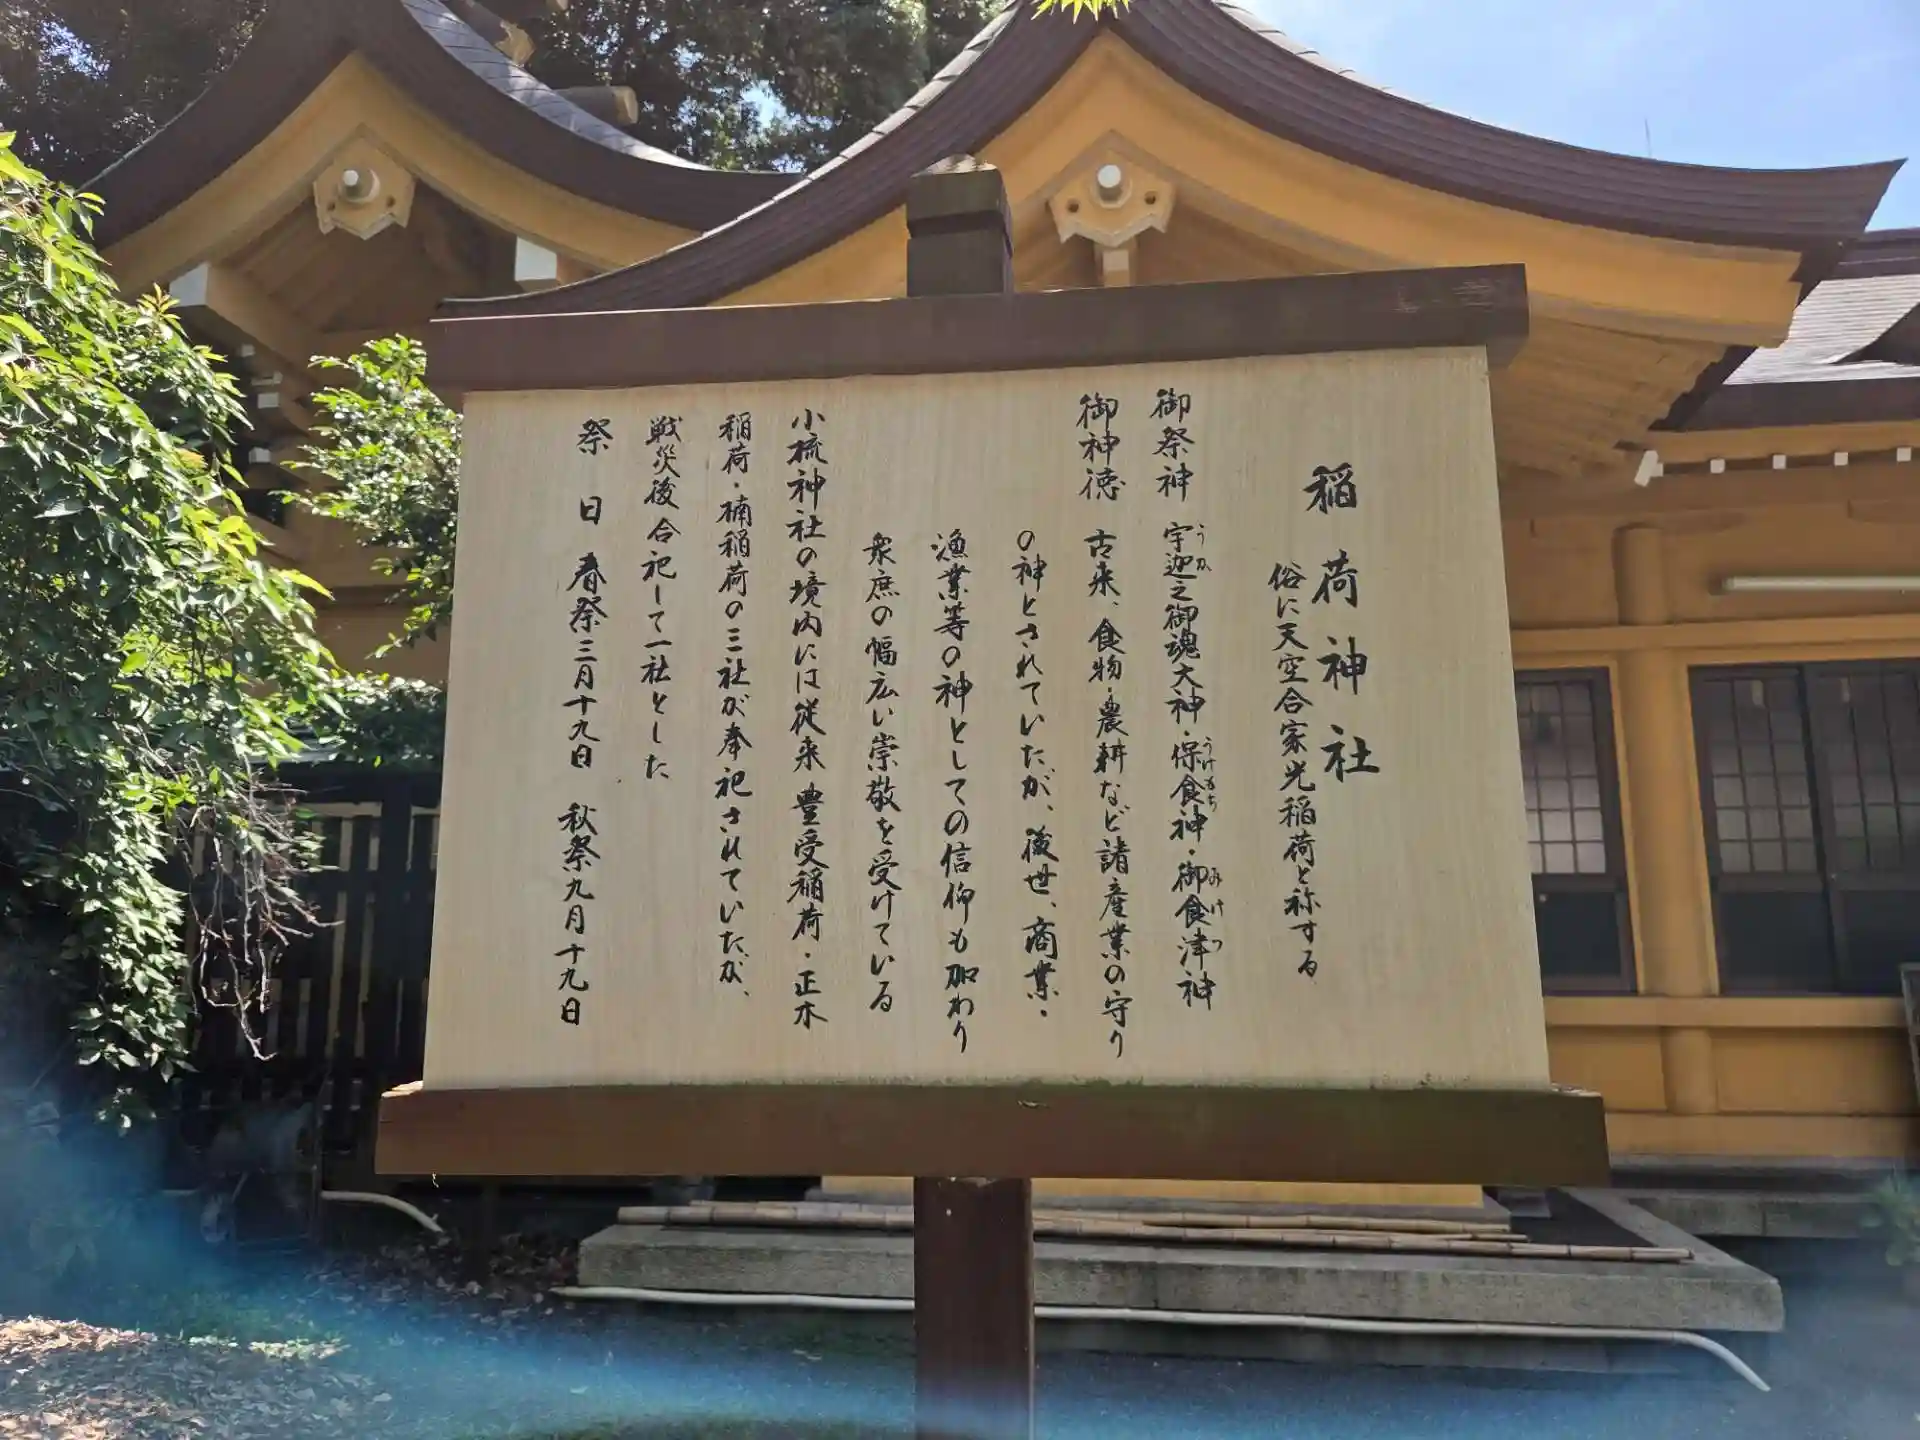 稲荷神社
俗に天空合家光稲荷と称する
御祭神　宇迦之御魂大神・保食神・御食津神
うか
うけもち
みけつ
御神徳　古来、食物・農耕など諸産業の守り
の神とされていたが、後世、商業・
漁業等の神としての信仰も加わり
衆庶の幅広い崇敬を受けている
小梳神社の境内には従来豊受稲荷・正木
稲荷・楠稲荷の三社が奉祀されていたが、
戦災後合祀して一社とした
祭日　春祭三月十九日　秋祭九月十九日